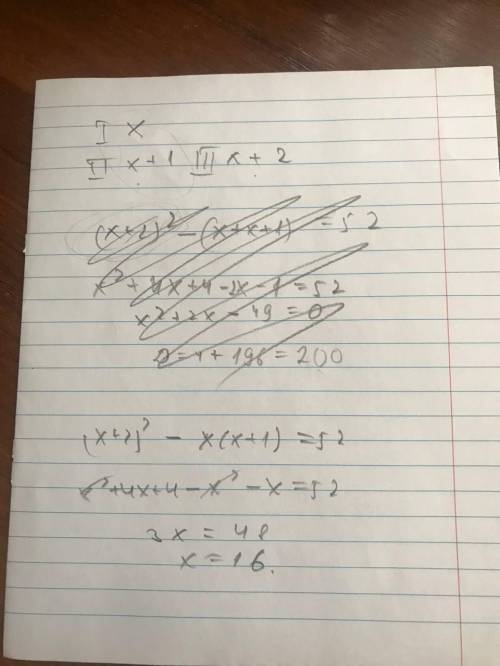 I x
II x+1 III x+2
(x+2)² - (x+x+1) = 52
x² + 4x+4 -2x -1 = 52
x²+2x - 49 = 0
D = 4 + 196 = 200
(x+2)² - x(x+1) = 52
x²+4x+4 - x² - x = 52
3x = 48
x = 16.